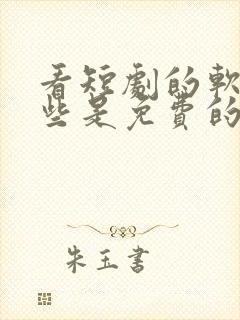 看短劇的軟
些是免費的
朱玉書